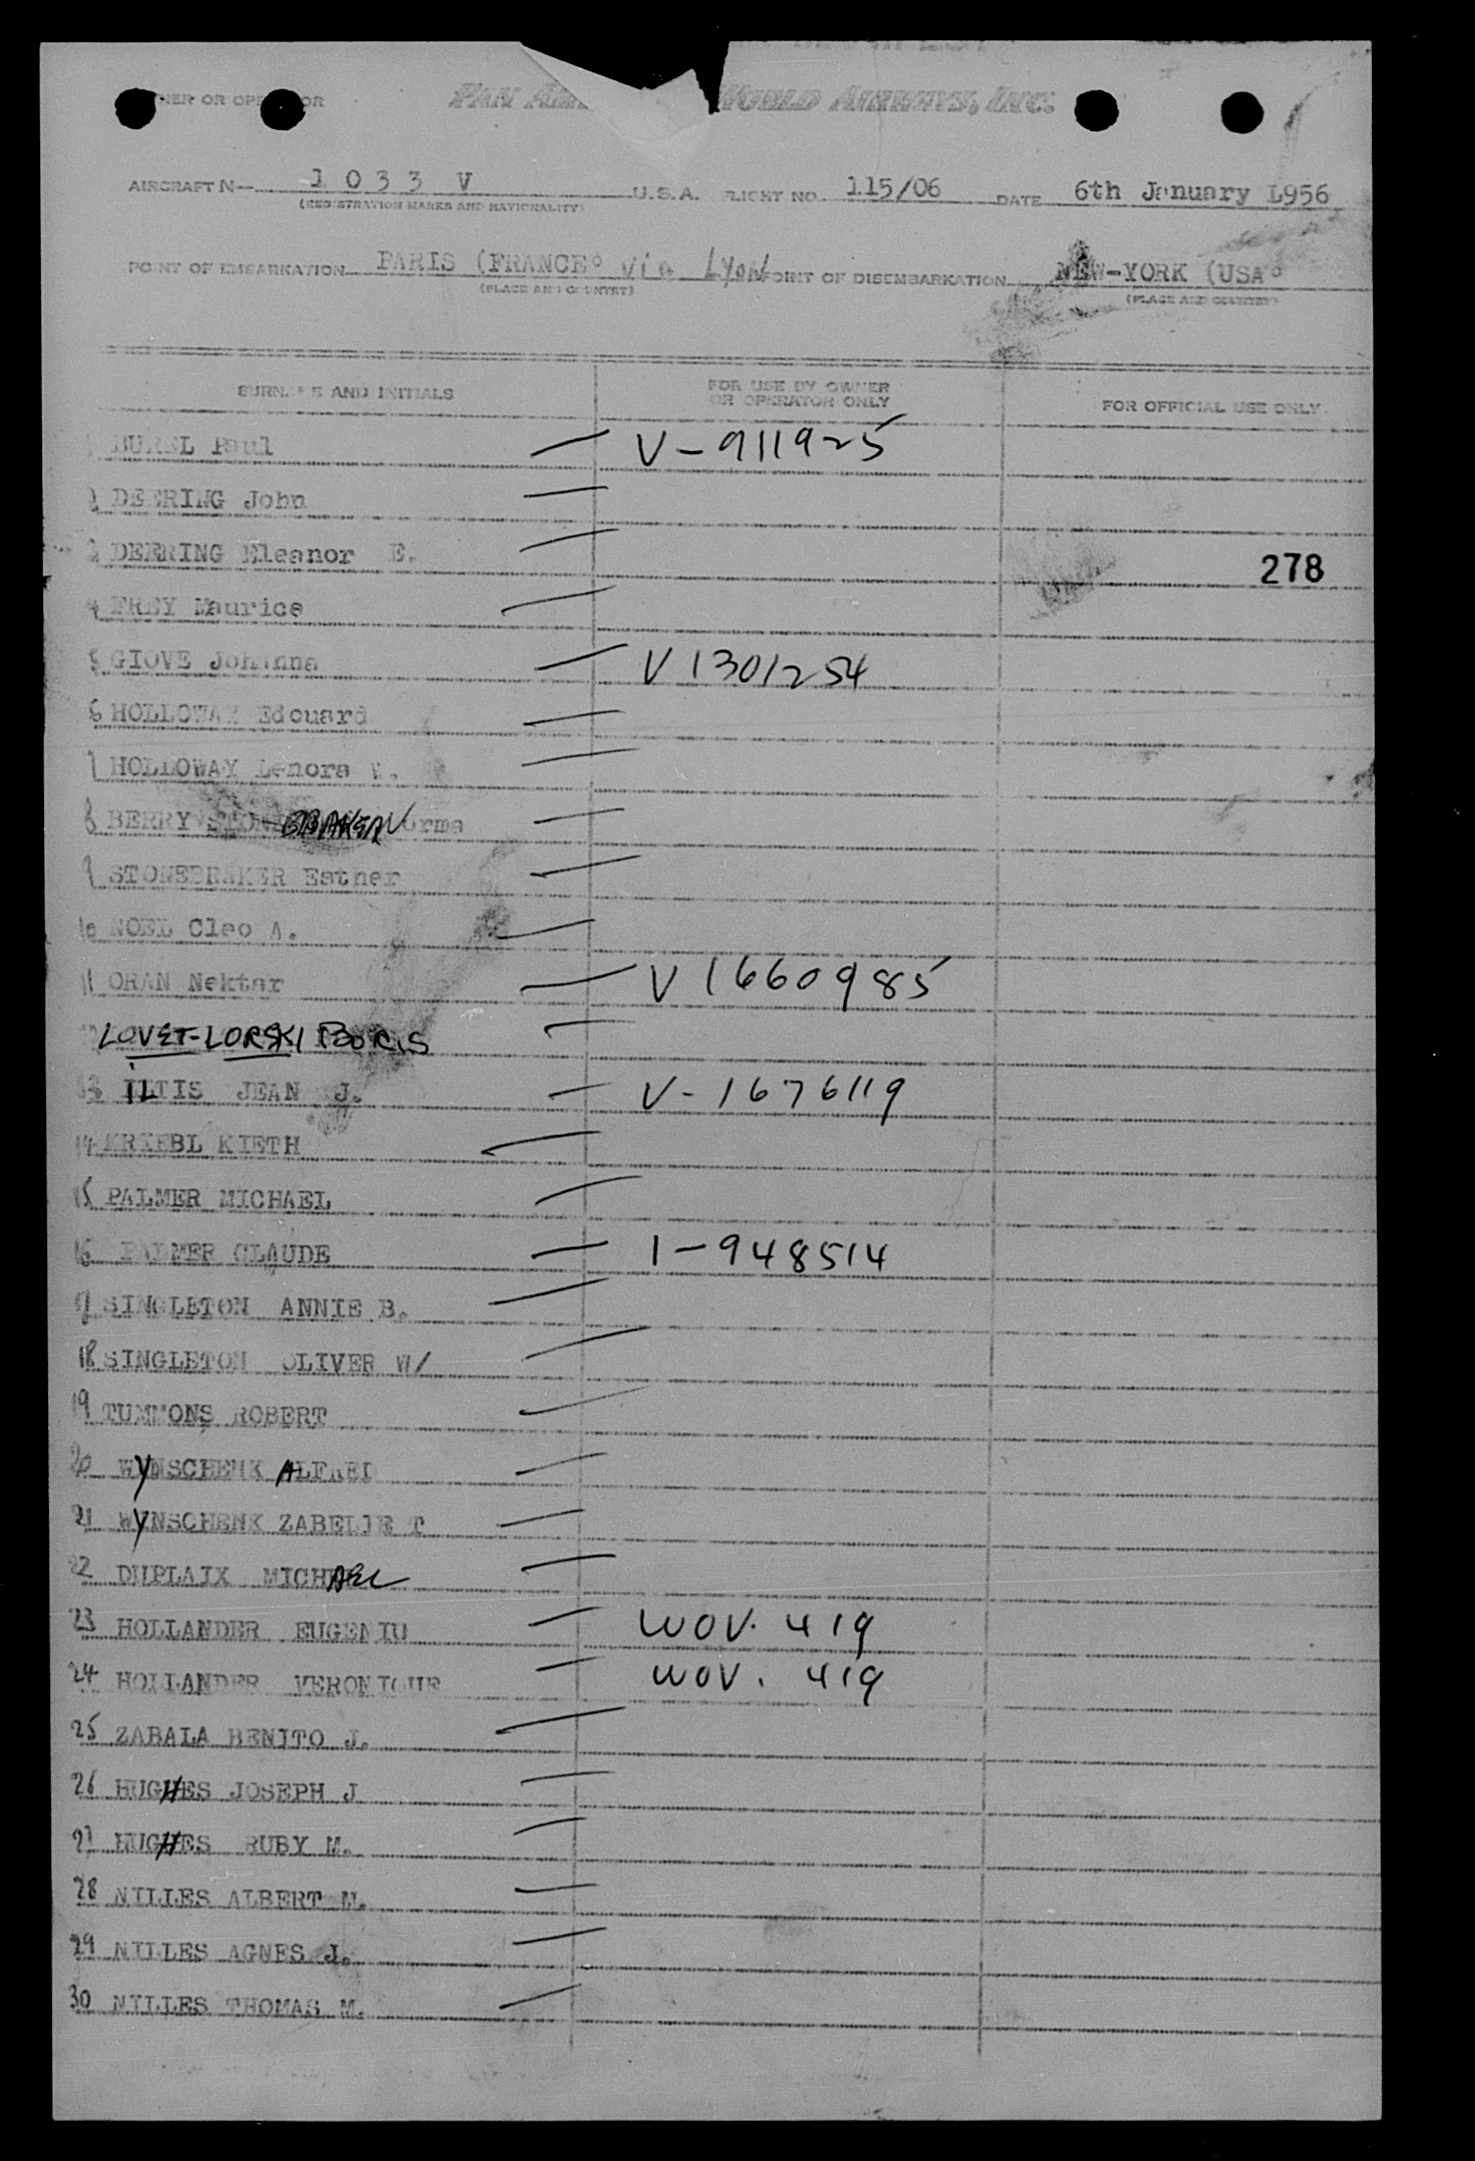 PAN WORLD AIRWAYS, INC.
AIRCRAFT N— 1 0 3 3 V U.S.A. FLIGHT NO. 115/06 DATE 6th January L956
(REGISTRATION MARKS AND NATIONALITY)
POINT OF EMBARKATION PARIS (FRANCE° via Lyon POINT OF DISEMBARKATION NEW-YORK (USA°
(PLACE AND COUNTRY) (PLACE AND COUNTRY)
AND INITIALS FOR USE BY OWNER OR OPERATOR ONLY FOR OFFICIAL USE ONLY
Paul V-911925
2 DEERING John
3 DEERING Eleanor E. 278
4 FREY Maurice
5 GIOVE Johanna V 1301254
6 HOLLOWAY Edouard
7 HOLLOWAY Lenora W.
8 BERRY Norma
9 STONEBRAKER Esther
10 NOEL Cleo A.
11 ORAN Nektar V 1660985
LOVET-LORSKI BORIS
13 ILTIS JEAN J. V-1676119
14 KRIEBL KIETH
15 PALMER MICHAEL
16 PALMER CLAUDE 1-948514
17 SINGLETON ANNIE B.
18 SINGLETON OLIVER W/
19 TUMMONS ROBERT
20 WYNSCHENK ALFRED
21 WYNSCHENK ZABELIE T
22 DUPLAIX MICHAEL
23 HOLLANDER EUGENIU WOV. 419
24 HOLLANDER VERONIQUE WOV. 419
25 ZABALA BENITO J.
26 HUGHES JOSEPH J
27 HUGHES RUBY M.
28 NILLES ALBERT M.
29 NILLES AGNES J.
30 NILLES THOMAS M.